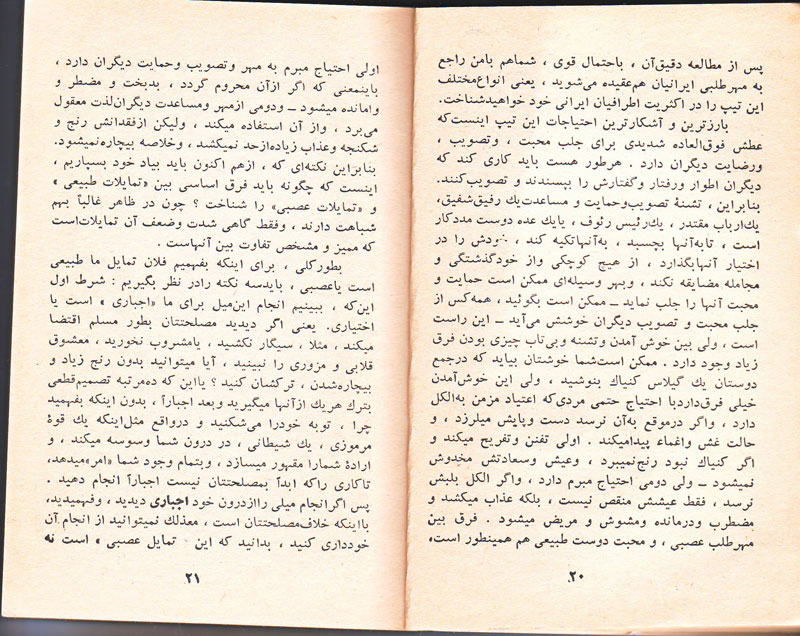 پس از مطالعه دقیق‌آن ، باحتمال قوی ، شماهم بامن راجع
به مهرطلبی ایرانیان هم‌عقیده می‌شوید ، یعنی انواع‌مختلف
این تیپ را در اکثریت اطرافیان ایرانی خود خواهیدشناخت.
بارزترین و آشکارترین احتیاجات این تیپ اینست‌که
عطش فوق‌العاده شدیدی برای جلب محبت ، وتصویب ،
ورضایت دیگران دارد . هرطور هست باید کاری کند که
دیگران اطوار ورفتار وگفتارش را بپسندند و تصویب‌کنند.
بنابراین ، تشنهٔ تصویب‌وحمایت و مساعدت‌یك رفیق‌شفیق،
یك‌ارباب مقتدر ، یك‌رئیس رئوف ، یایك عده دوست مددکار
است ، تابه‌آنها بچسبد ، به‌آنهاتکیه کند ، خودش را در
اختیار آنهابگذارد ، از هیچ کوچکی واز خودگذشتگی و
مجامله مضایقه نکند ، وبهر وسیله‌ای ممکن است حمایت و
محبت آنها را جلب نماید ـ ممکن است بگوئید ، همه‌کس از
جلب محبت و تصویب دیگران خوشش می‌آید ـ این راست
است ، ولی بین خوش آمدن وتشنه وبی‌تاب چیزی بودن فرق
زیاد وجود دارد . ممکن است‌شما خوشتان بیاید که درجمع
دوستان یك گیلاس کنیاك بنوشید ، ولی این خوش‌آمدن
خیلی فرق‌داردبا احتیاج حتمی مردی‌که اعتیاد مزمن به‌الکل
دارد ، واگر درموقع به‌آن نرسد دست وپایش میلرزد ، و
حالت غش واغماء پیدامیکند . اولی تفنن وتفریح میکند و
اگر کنیاك نبود رنج‌نمیبرد ، وعیش وسعادتش مخدوش
نمیشود ـ ولی دومی احتیاج مبرم دارد ، واگر الکل بلبش
نرسد ، فقط عیشش منقص نیست ، بلکه عذاب میکشد و
مضطرب ودرمانده ومشوش و مریض میشود . فرق بین
مهرطلب عصبی ، و محبت دوست طبیعی هم همینطور است،
۲۰
اولی احتیاج مبرم به مهر وتصویب وحمایت دیگران دارد ،
باینمعنی که اگر ازآن محروم گردد ، بدبخت و مضطر و
وامانده میشود ـ ودومی ازمهر ومساعدت دیگران‌لذت معقول
می‌برد ، واز آن استفاده میکند ، ولیکن ازفقدانش رنج و
شکنجه وعذاب زیاده‌ازحد نمیکشد ، وخلاصه بیچاره‌نمیشود.
بنابراین نکته‌ای که ، ازهم اکنون باید بیاد خود بسپاریم ،
اینست که چگونه باید فرق اساسی بین «تمایلات طبیعی »
و «تمایلات عصبی» را شناخت ؟ چون در ظاهر غالباً بهم
شباهت دارند ، وفقط گاهی شدت وضعف آن تمایلات‌است
که ممیز و مشخص تفاوت بین آنهاست .
بطورکلی ، برای اینکه بفهمیم فلان تمایل ما طبیعی
است یاعصبی ، بایدسه نکته رادر نظر بگیریم : شرط اول
این‌که ، ببینیم انجام این‌میل برای ما «اجباری » است یا
اختیاری. یعنی اگر دیدید مصلحتتان بطور مسلم اقتضا
میکند ، مثلا ، سیگار نکشید ، یامشروب نخورید ، معشوق
قلابی و مزوری را نبینید ، آیا میتوانید بدون رنج زیاد و
بیچاره‌شدن ، ترکشان کنید ؟ یااین که ده‌مرتبه تصمیم‌قطعی
بترك هریك ازآنها میگیرید وبعد اجباراً ، بدون اینکه بفهمید
چرا ، توبه خودرا می‌شکنید و درواقع مثل‌اینکه یك قوهٔ
مرموزی ، یك شیطانی ، در درون شما وسوسه میکند ، و
ارادهٔ شمارا مقهور میسازد ، وبتمام وجود شما «امر»میدهد،
تاکاری راکه ابداً بمصلحتتان نیست اجباراً انجام دهید .
پس اگرانجام میلی راازدرون خود اجباری دیدید ، وفهمیدید،
بااینکه خلاف‌مصلحتتان است ، معذلك نمیتوانید از انجام آن
خودداری کنید ، بدانید که این تمایل عصبی » است نه
۲۱